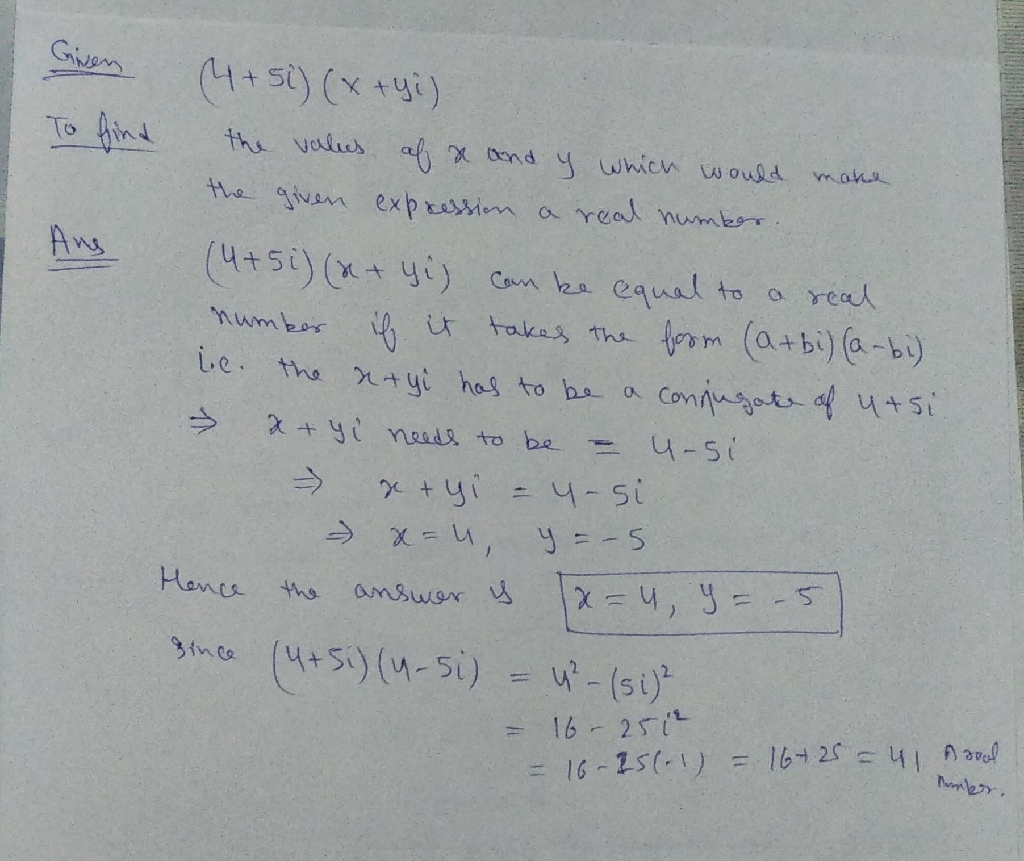 Given (4+5i)(x+yi)
To find the values of x and y which would make
the given expression a real number.
Ans (4+5i)(x+yi) can be equal to a real
number if it takes the form (a+bi)(a-bi)
i.e. the x+yi has to be a conjugate of 4+5i
⇒ x+yi needs to be = 4-5i
⇒ x+yi = 4-5i
⇒ x=4, y=-5
Hence the answer is x=4, y=-5
Since (4+5i)(4-5i) = 4²-(5i)²
= 16-25i²
= 16-25(-1) = 16+25 = 41 A real
number.